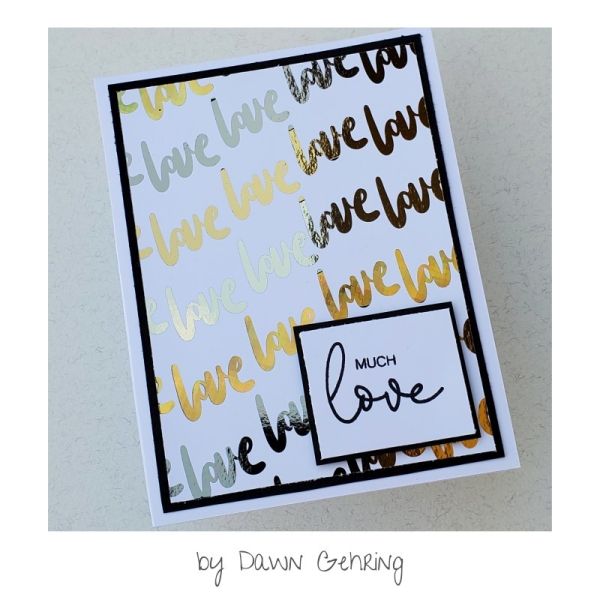 love
love love love love
love love love love
love love love love
love love love love
love love
MUCH
love
by Dawn Gehring